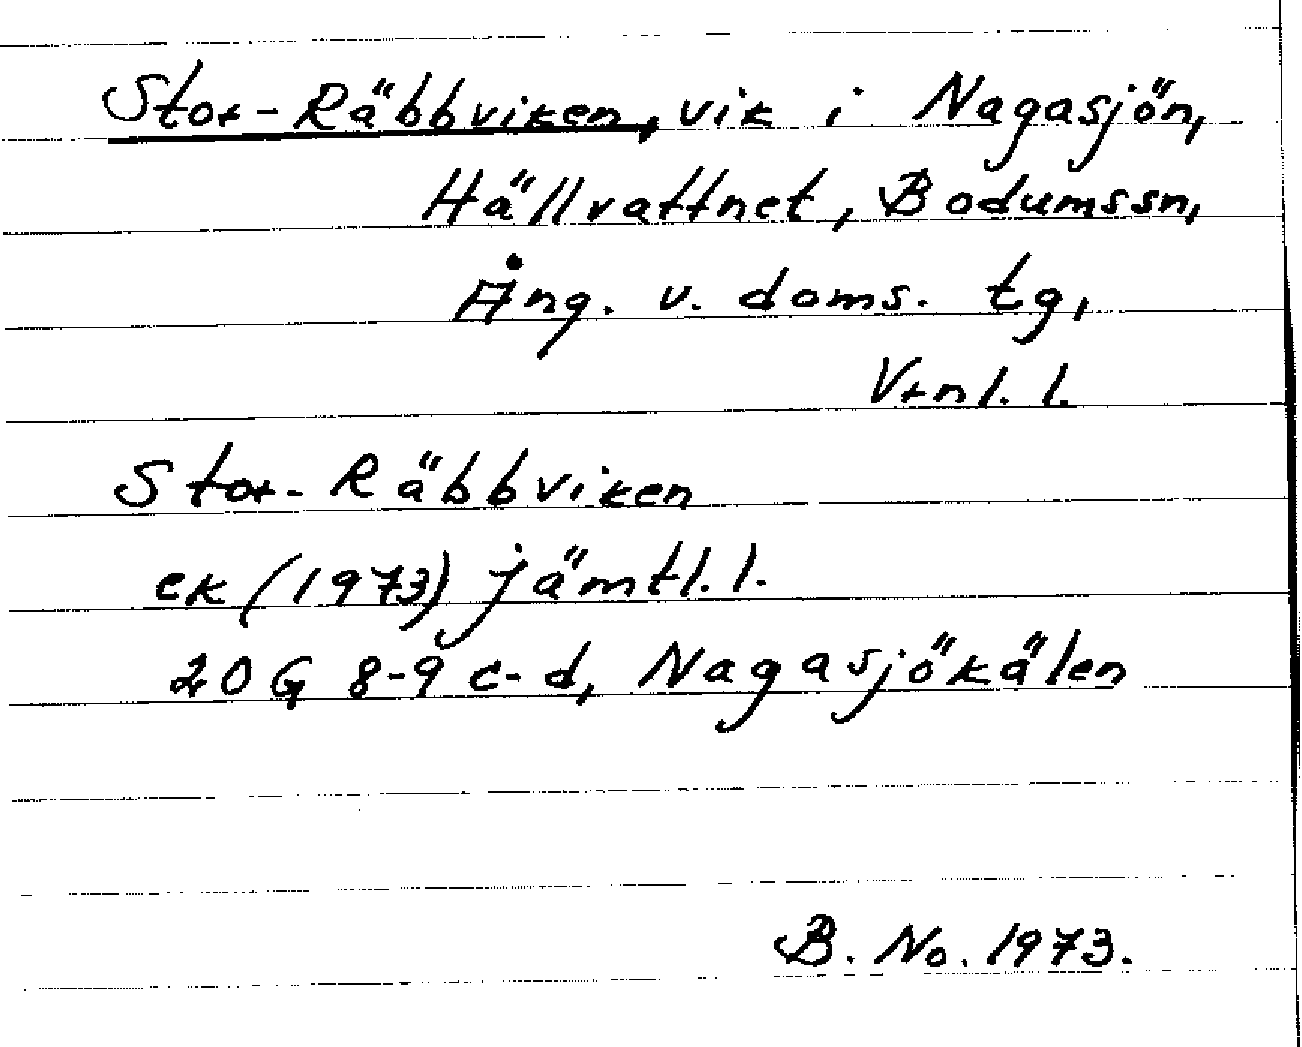 Stor-Räbbviken, vik i Nagasjön,
Hällvattnet, Bodumssn,
Ång. v. doms. tg,
Vrnl. l.
Stor-Räbbviken
ek (1973) jämtl. l.
20G 8-9 c-d, Nagasjökälen
B. No. 1973.